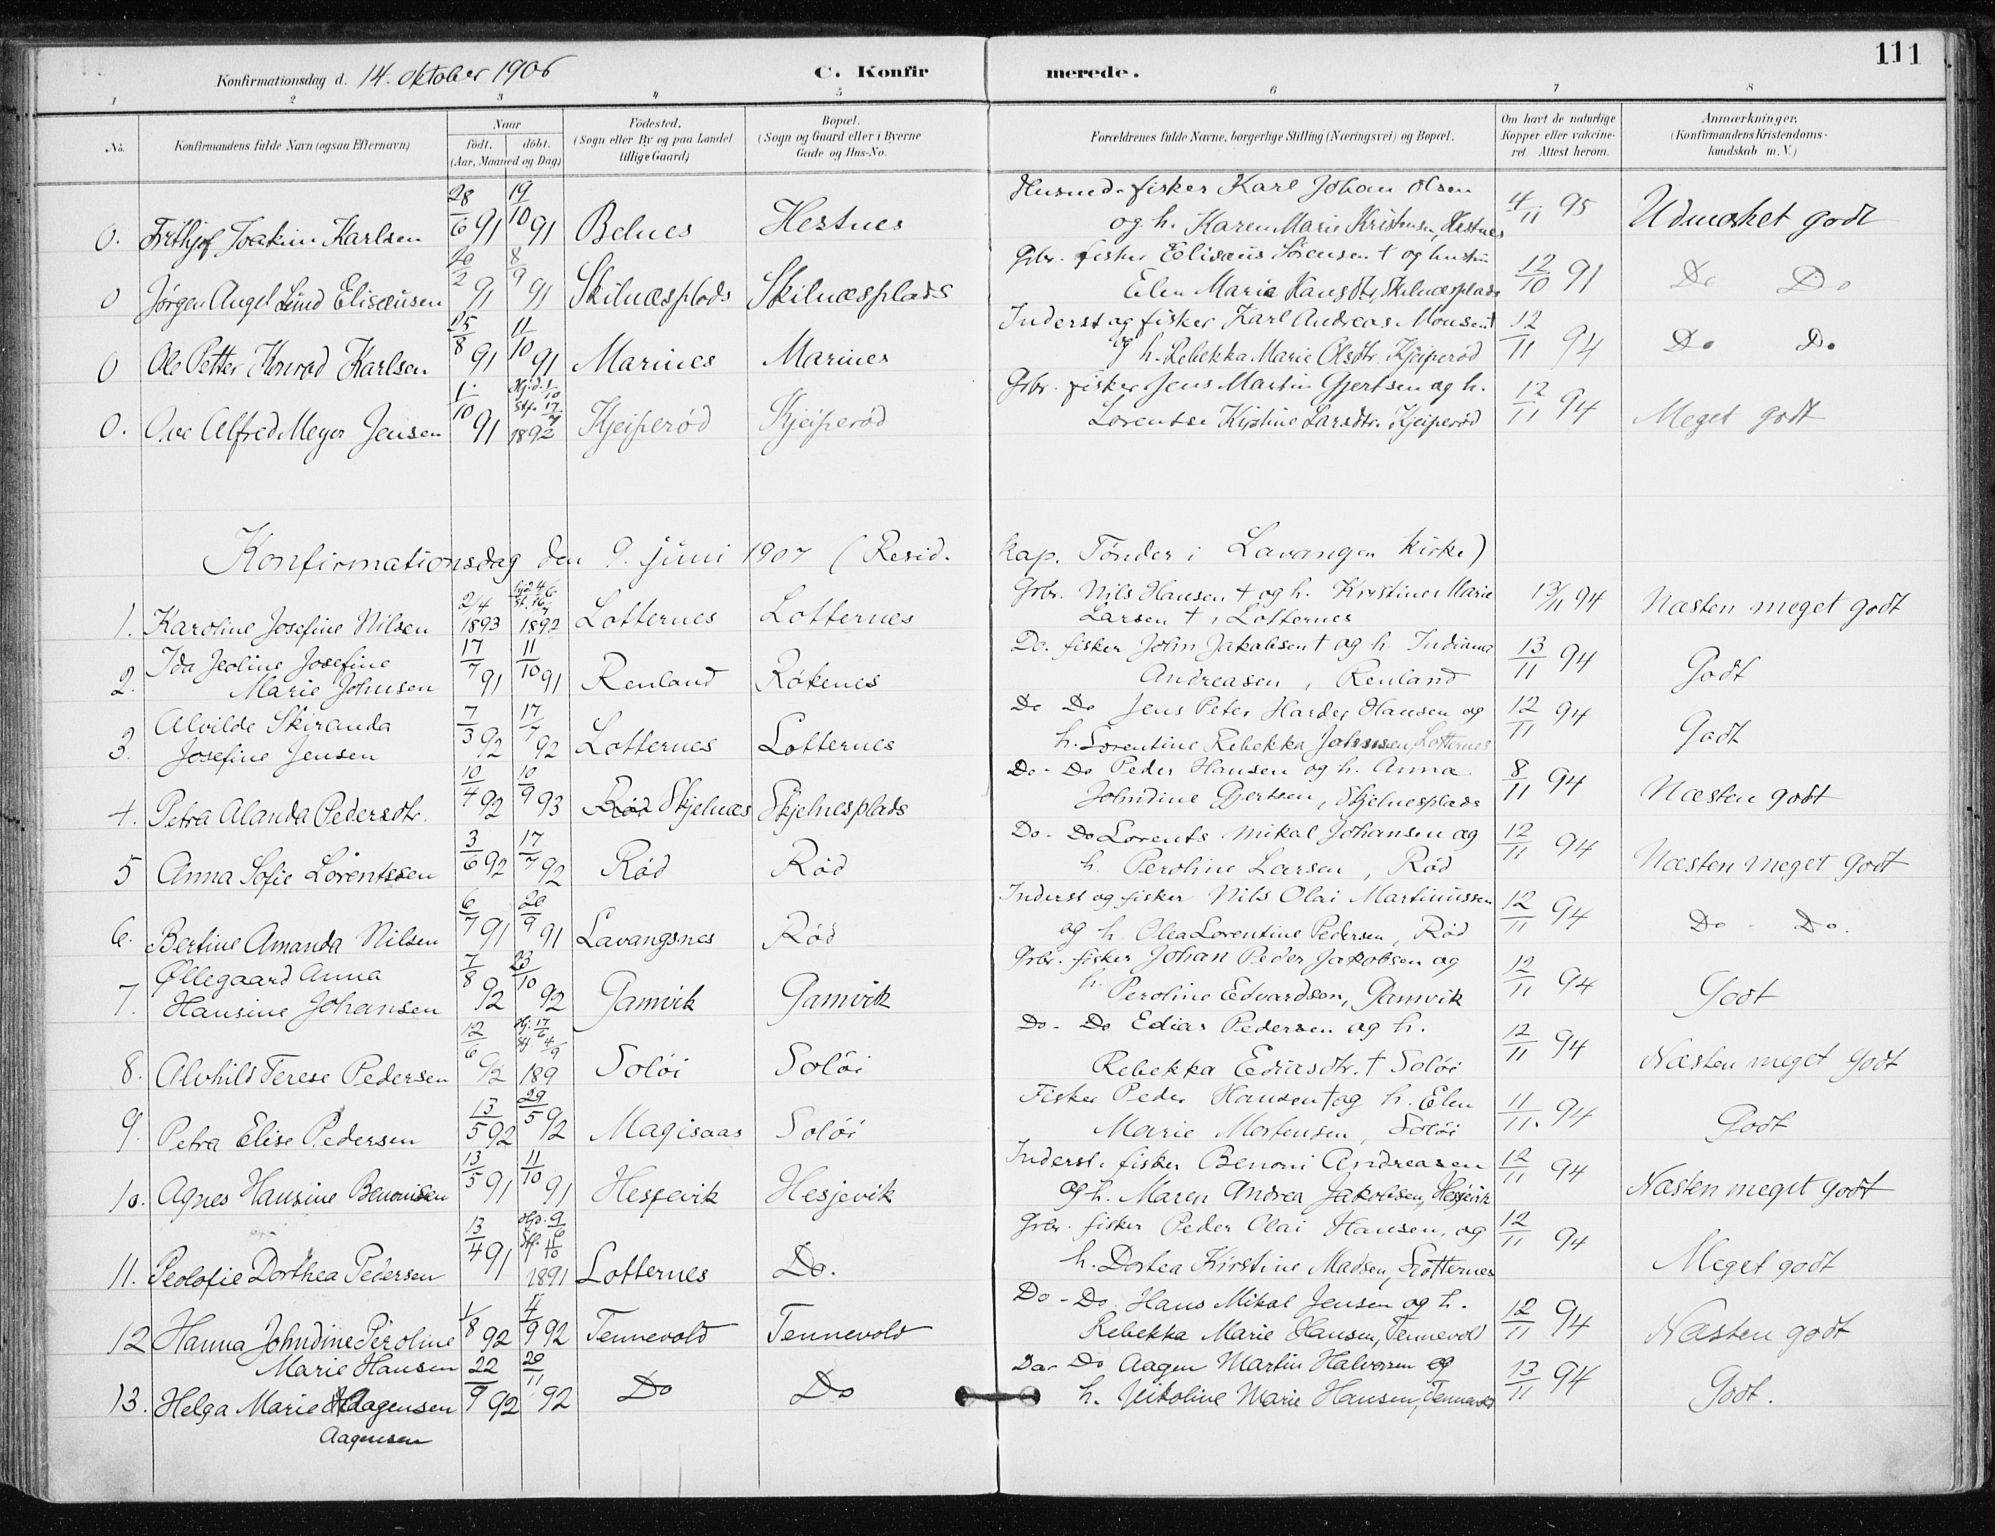 111
Konfirmationsdag d. 14. oktober 1906 C. Konfirmerede.
1 2 3 4 5 6 7 8
No. Konfirmandens fulde Navn (ogsaa Efternavn) Naar født. døbt. (Aar, Maaned og Dag) Fødested. (Sogn eller By og paa Landet tillige Gaard) Bopæl. (Sogn og Gaard eller i Byerne Gade og Hus-No. Forældrenes fulde Navne, borgerlige Stilling (Næringsvei) og Bopæl. Om havt de naturlige Kopper eller vaccineret. Attest herom. Anmærkninger. (Konfirmandens Kristendomskundskab m. V.)
0. Frithjof Joakim Karlsen 28/6 91 19/10 91 Belnes Hestnes Husmd. fisker Karl Johan Olsen
og h. Karen Marie Kristensen, Hestnes 4/11 95 Udmerket godt
0 Jørgen Angel Lund Elisæusen 20/2 91 8/9 91 Skilnæsplads Skilnæsplads Grbr. fisker Elisæus Sørensen † og hustru
Elen Maria Hansdtr, Skilnæsplads 12/10 91 Do Do
0 Ole Petter Konrad Karlsen 25/8 91 11/10 91 Marines Marines Inderst og fisker Karl Andreas Monsen †
og h. Rebekka Marie Olsdtr. Kjeiperød 12/11 94 Do Do
0. Ove Alfred Meyer Jensen 1/10 91 Hj.d. 1/10 Stf. 17/7 1892 Kjeiperød Kjeiperød Grbr. fisker Jens Martin Gjertsen og h.
Lorentse Kirstine Larsdtr. Kjeiperød 12/11 94 Meget godt
Konfirmationsdag den 9. juni 1907 (Resid. kap. Tønder i Lavangen Kirke)
1. Karoline Josefine Nilsen 2/4 1893 1892 Lotternes Lotternes Grbr. Nils Hansen † og h. Kristine Marie
Larsen †, Lotternes 13/11 94 Næsten meget godt
2. Ida Jeoline Josefine
Marie Johnsen 17/7 91 11/10 91 Renland Røkenes Do. fisker John Jakobsen † og h. Indiana
Andreasen, Renland 13/11 94 Godt
3. Alvilde Skiranda
Josefine Jensen 7/3 92 17/7 92 Lotternes Lotternes Do Do Jens Peter Harder Hansen og
h. Lorentine Rebekka Johnsen, Lotternes 12/11 94 Godt
4. Petra Alanda Pedersdtr. 10/4 92 10/9 93 Rød Skjelnæs Skjelnesplads Do - Do Peder Hansen og h. Anna
Johndine Gjertsen, Skjelnesplads 8/11 94 Næsten godt
5 Anna Sofie Lorentsen 3/6 92 17/7 92 Rød Rød Do - Do Lorents Mikal Johansen og
h. Peroline Larsen, Rød 12/11 94 Næsten meget godt
6. Bertine Amanda Nilsen 6/7 91 20/9 91 Lavangsnes Rød Inderst og fisker Nils Olai Martinussen
og h. Olea Lorentine Pedersen, Rød 12/11 94 Do - Do.
7. Øllegaard Anna
Hansine Johansen 7/8 92 23/10 92 Gamvik Gamvik Grbr. fisker Johan Peder Jakobsen og
h. Peroline Edvardsen, Gamvik 12/11 94 Godt
8. Alvhild Terese Pedersen 12/6 92 Hj. 17/6 Stf. 4/9 189 Soløi Soløi Do - Do Edias Pedersen og h.
Rebekka Ediasdtr. † Soløi 12/11 94 Næsten meget godt
9. Petra Elise Pedersen 13/5 92 29/5 92 Magisaas Soløi Fisker Peder Hansen † og h. Elen
Marie Mortensen, Soløi 11/11. 94 Godt
10. Agnes Hansine Benonisen 13/5 91 11/10 91 Hesjevik Hesjevik Inderst. fisker Benoni Andreasen
og h. Maren Andrea Jakobsen, Hesjevik 12/11 94 Næsten meget godt
11. Peolofie Dorthea Pedersen 13/4 91 Hjd. 9/6 Stf. 11/10 1891 Lotternes Do. Grbr. fisker Peder Olai Hansen, og
h. Dortea Kirstine Madsen, Lotternes 12/11 94 Meget godt
12 Hanna Johndine Peroline
Marie Hansen 1/8 92 4/9 92 Tennevold Tennevold Do - Do. Hans Mikal Jensen og h.
Rebekka Marie Hansen, Tennevold 12/11 94 Næsten godt
13. Helga Marie Aagensen
Aagensen 22/9 92 20/11 92 Do Do Do - Do Aagen Martin Halvorsen og
h. Nikoline Marie Hansen, Tennevold 13/11 94 Godt.